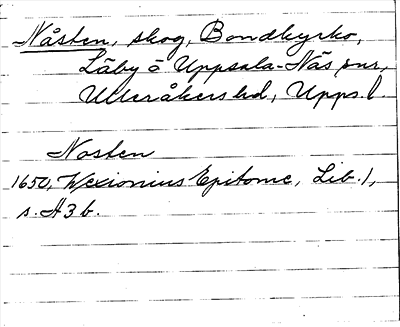 Nåsten, skog, Bondkyrko,
Läby o Uppsala-Näs snr,
Ulleråkers hd, Upps. l.
Nosten
1650, Wexionius Epitome, Lib. 1,
s. H3b.